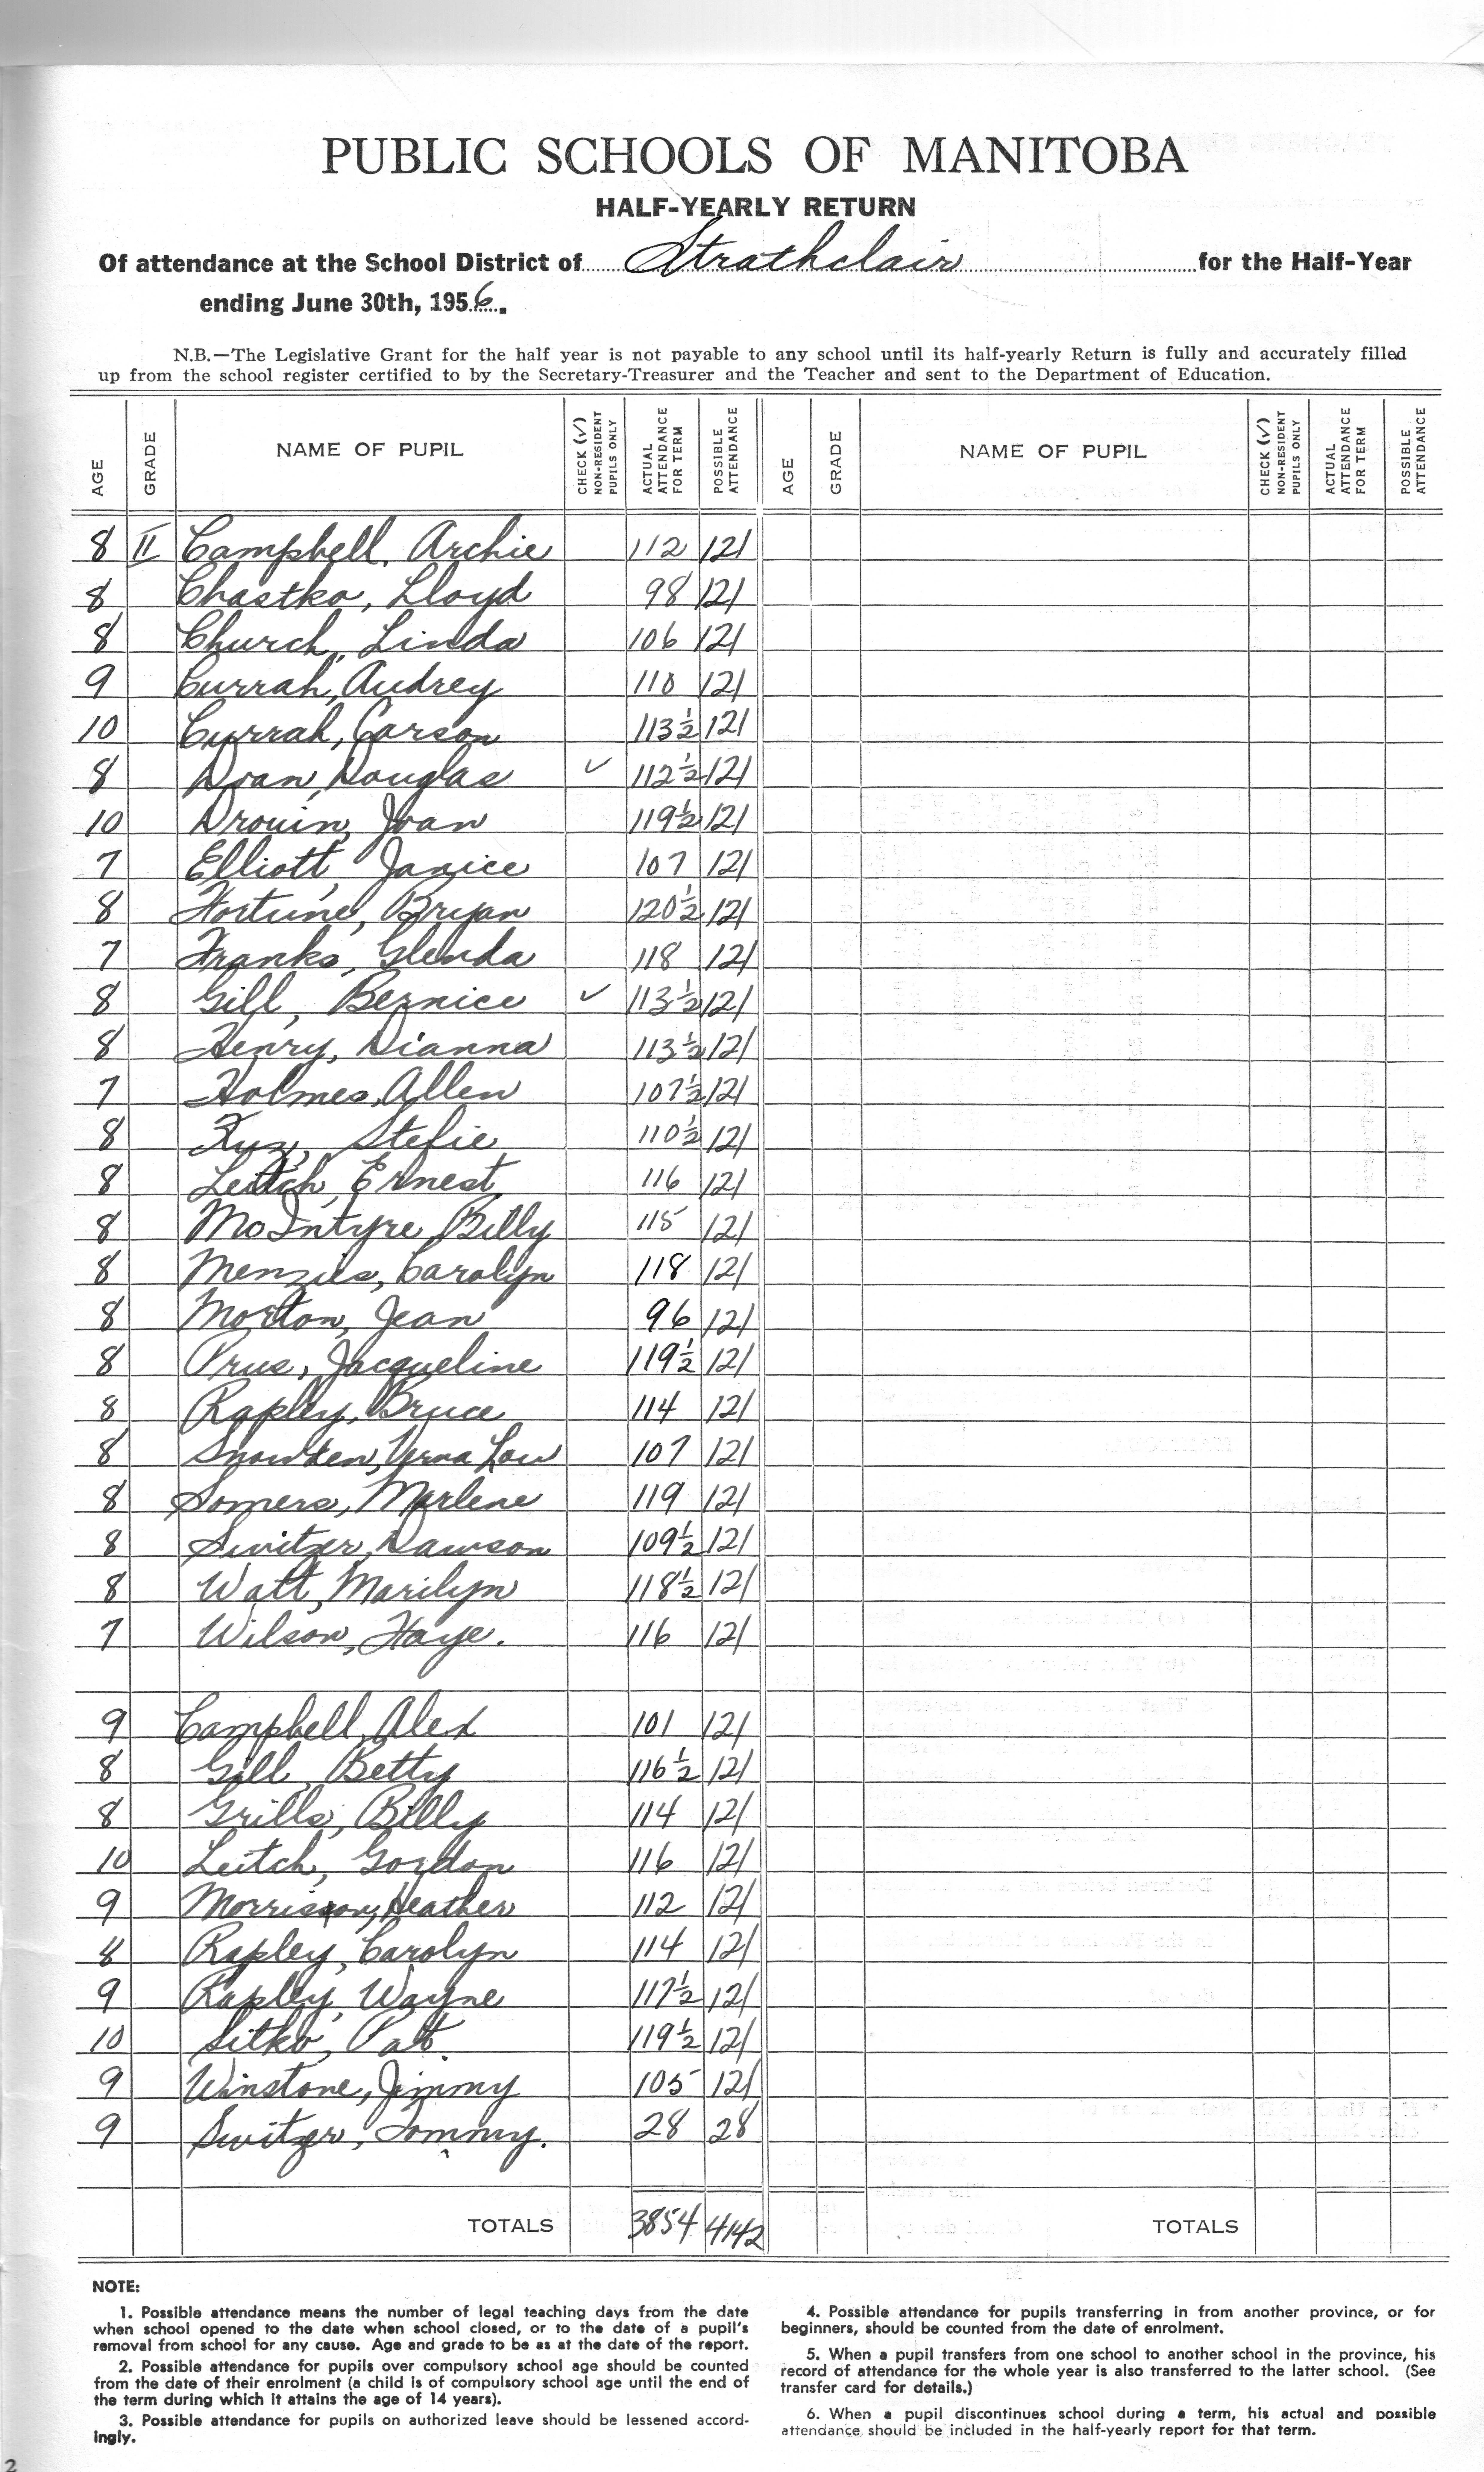 PUBLIC SCHOOLS OF MANITOBA
HALF-YEARLY RETURN
Of attendance at the School District of Strathclair for the Half-Year
ending June 30th, 1956.
N.B.—The Legislative Grant for the half year is not payable to any school until its half-yearly Return is fully and accurately filled
up from the school register certified to by the Secretary-Treasurer and the Teacher and sent to the Department of Education.
AGE GRADE NAME OF PUPIL CHECK (✓) NON-RESIDENT PUPILS ONLY ACTUAL ATTENDANCE FOR TERM POSSIBLE ATTENDANCE AGE GRADE NAME OF PUPIL CHECK (✓) NON-RESIDENT PUPILS ONLY ACTUAL ATTENDANCE FOR TERM POSSIBLE ATTENDANCE
8 II Campbell, Archie 112 121
8 Chastko, Lloyd 98 121
8 Church, Linda 106 121
9 Currah, Audrey 110 121
10 Currah, Carson 113½ 121
8 Doan, Douglas ✓ 112½ 121
10 Drouin, Joan 119½ 121
7 Elliott, Janice 107 121
8 Fortune, Bryan 120½ 121
7 Franks, Glenda 118 121
8 Gill, Bernice ✓ 113½ 121
8 Henry, Dianna 113½ 121
7 Holmes, Allen 107½ 121
8 Kuz, Stefie 110½ 121
8 Leitch, Ernest 116 121
8 McIntyre, Billy 115 121
8 Menzies, Carolyn 118 121
8 Morton, Jean 96 121
8 Prus, Jacqueline 119½ 121
8 Rapley, Bruce 114 121
8 Snowden, Verna Lou 107 121
8 Somers, Marlene 119 121
8 Switzer, Dawson 109½ 121
8 Watt, Marilyn 118½ 121
7 Wilson, Faye. 116 121
9 Campbell, Alex 101 121
8 Gill, Betty 116½ 121
8 Grills, Billy 114 121
10 Leitch, Gordon 116 121
9 Morrison, Heather 112 121
8 Rapley, Carolyn 114 121
9 Rapley, Wayne 117½ 121
10 Sitko, Pat. 119½ 121
9 Winstone, Jimmy 105 121
9 Switzer, Tommy. 28 28
TOTALS 3854 4142 TOTALS
NOTE:
1. Possible attendance means the number of legal teaching days from the date
when school opened to the date when school closed, or to the date of a pupil's
removal from school for any cause. Age and grade to be as at the date of the report.
2. Possible attendance for pupils over compulsory school age should be counted
from the date of their enrolment (a child is of compulsory school age until the end of
the term during which it attains the age of 14 years).
3. Possible attendance for pupils on authorized leave should be lessened accord-
ingly.
4. Possible attendance for pupils transferring in from another province, or for
beginners, should be counted from the date of enrolment.
5. When a pupil transfers from one school to another school in the province, his
record of attendance for the whole year is also transferred to the latter school. (See
transfer card for details.)
6. When a pupil discontinues school during a term, his actual and possible
attendance should be included in the half-yearly report for that term.
2